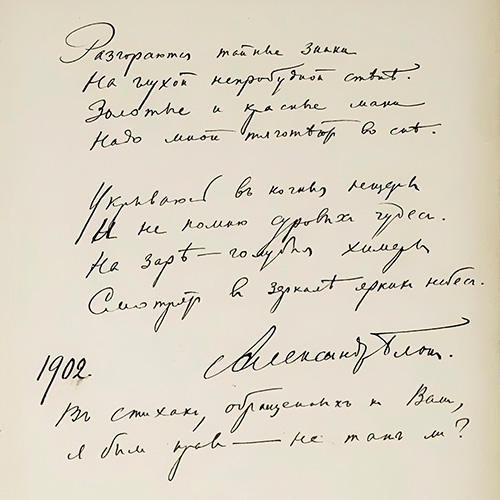 Разгораются тайные знаки
На глухой непробудной стѣнѣ.
Золотые и красные маки
Надо мной тяготѣют во снѣ.
Укрываюсь въ ночныя пещеры
И не помню суровыхъ чудесъ.
На зарѣ — голубыя химеры
Смотрятъ в зеркалѣ яркихъ небесъ.
Александръ Блокъ.
1902.
Въ стихахъ, обращенныхъ к Вамъ,
я былъ правъ — не такъ ли?